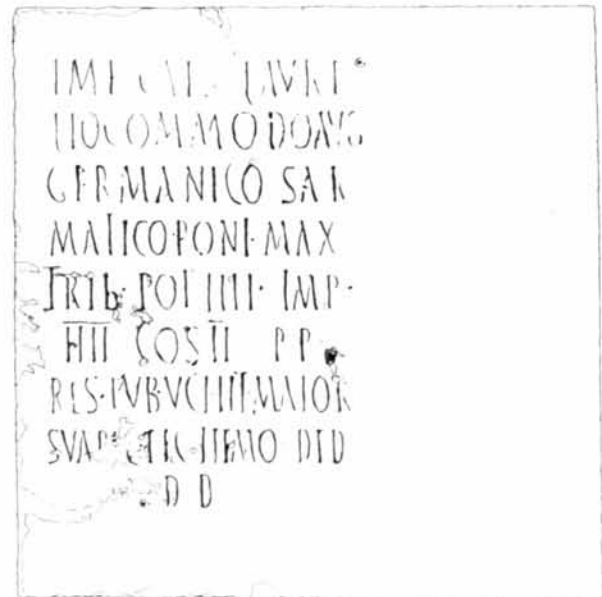 IMP CAES L AVRE
LIO COMMODO AVG
GERMANICO SAR
MATICO PONT·MAX
TRIB·POT IIII· IMP·
III COS II P P
RES·PVB·VCHIT·MAIOR
SVA DED
D D